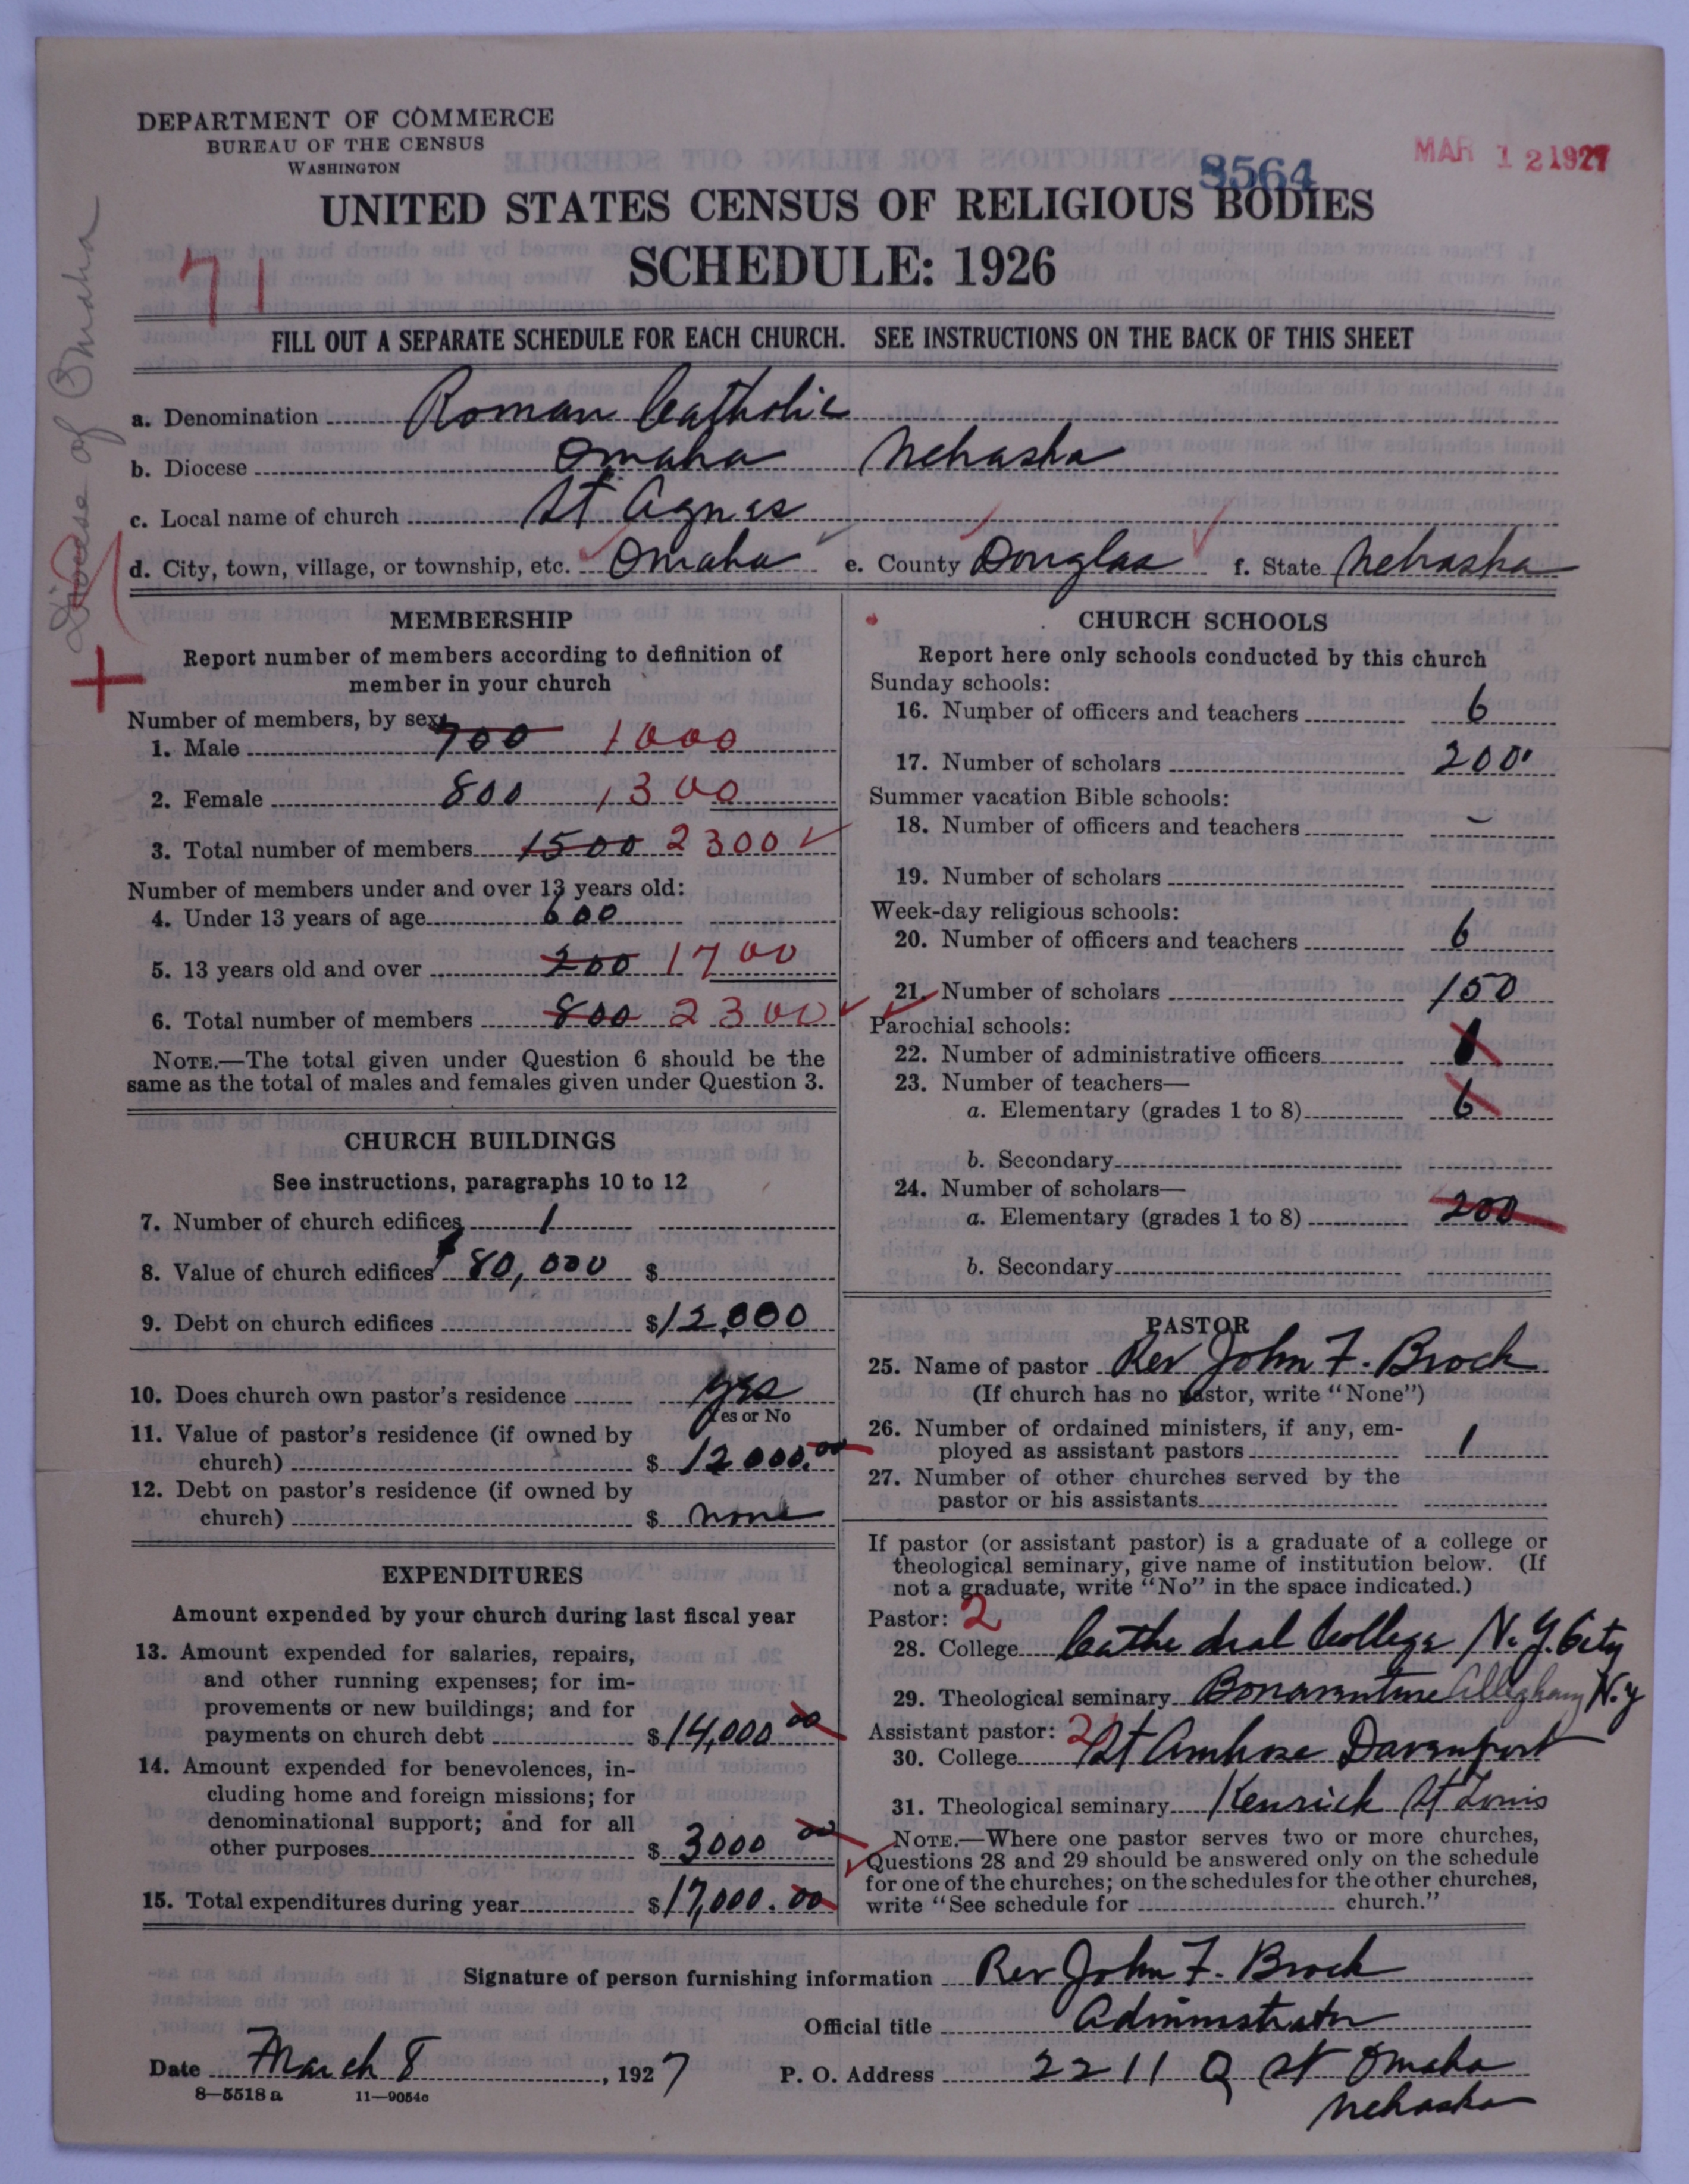 DEPARTMENT OF COMMERCE
BUREAU OF THE CENSUS
WASHINGTON
8564
MAR 12 1927
UNITED STATES CENSUS OF RELIGIOUS BODIES
SCHEDULE: 1926
71
Diocese of Omaha
FILL OUT A SEPARATE SCHEDULE FOR EACH CHURCH. SEE INSTRUCTIONS ON THE BACK OF THIS SHEET
a. Denomination Roman Catholic
b. Diocese Omaha Nebraska
c. Local name of church St Agnes
d. City, town, village, or township, etc. Omaha e. County Douglas f. State Nebraska
MEMBERSHIP
Report number of members according to definition of
member in your church
Number of members, by sex:
1. Male 700 1000
2. Female 800 1300
3. Total number of members 1500 2300
Number of members under and over 13 years old:
4. Under 13 years of age 600
5. 13 years old and over 200 1700
6. Total number of members 800 2300
NOTE.—The total given under Question 6 should be the
same as the total of males and females given under Question 3.
CHURCH BUILDINGS
See instructions, paragraphs 10 to 12
7. Number of church edifices 1
8. Value of church edifices $80,000 $
9. Debt on church edifices $12,000
10. Does church own pastor's residence yes
Yes or No
11. Value of pastor's residence (if owned by
church) $ 12000.00
12. Debt on pastor's residence (if owned by
church) $ none
EXPENDITURES
Amount expended by your church during last fiscal year
13. Amount expended for salaries, repairs,
and other running expenses; for im-
provements or new buildings; and for
payments on church debt $14,000 00
14. Amount expended for benevolences, in-
cluding home and foreign missions; for
denominational support; and for all
other purposes $ 3000 00
15. Total expenditures during year $17,000.00
CHURCH SCHOOLS
Report here only schools conducted by this church
Sunday schools:
16. Number of officers and teachers 6
17. Number of scholars 200
Summer vacation Bible schools:
18. Number of officers and teachers –
19. Number of scholars
Week-day religious schools:
20. Number of officers and teachers 6
21. Number of scholars 150
Parochial schools:
22. Number of administrative officers 1
23. Number of teachers—
a. Elementary (grades 1 to 8) 6
b. Secondary
24. Number of scholars—
a. Elementary (grades 1 to 8) 200
b. Secondary
PASTOR
25. Name of pastor Rev John F. Brock
(If church has no pastor, write "None")
26. Number of ordained ministers, if any, em-
ployed as assistant pastors 1
27. Number of other churches served by the
pastor or his assistants
If pastor (or assistant pastor) is a graduate of a college or
theological seminary, give name of institution below. (If
not a graduate, write "No" in the space indicated.)
Pastor: 2
28. College Cathedral College N.Y. City
29. Theological seminary Bonaventure Allegheny N.Y
Assistant pastor: 2
30. College St Ambrose Davenport
31. Theological seminary Kenrick St Louis
NOTE.—Where one pastor serves two or more churches,
Questions 28 and 29 should be answered only on the schedule
for one of the churches; on the schedules for the other churches,
write "See schedule for church."
Signature of person furnishing information Rev John F. Brock
Official title Administrator
Date March 8, 1927 P. O. Address 2211 Q St Omaha
Nebraska
8—5518 a 11—9054c